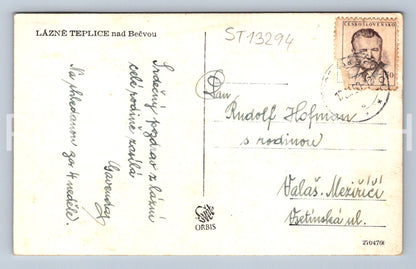 LÁZNĚ TEPLICE nad Bečvou
ST13294
ČESKOSLOVENSKO
Srdečný pozdrav z lázní
celé rodině zasílá
Gavenda
Na shledanou za 4 neděle.
Pan
Rudolf Hofman
s rodinou
Valaš. Meziříčí
Vsetínská ul.
ORBIS
270476